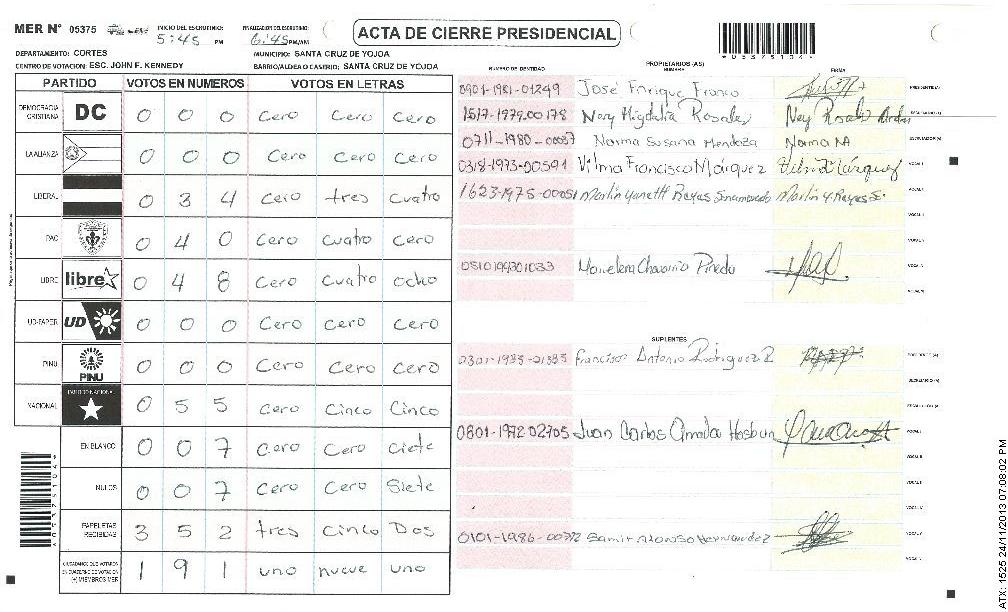 MER N° 05375 INICIO DEL ESCRUTINIO: 5:45 PM FINALIZACION DEL ESCRUTINIO: 6:45 PM/AM
ACTA DE CIERRE PRESIDENCIAL
*05375104*
DEPARTAMENTO: CORTES MUNICIPIO: SANTA CRUZ DE YOJOA
CENTRO DE VOTACION: ESC. JOHN F. KENNEDY BARRIO/ALDEA O CASERIO: SANTA CRUZ DE YOJOA
PARTIDO VOTOS EN NUMEROS VOTOS EN LETRAS
DEMOCRACIA CRISTIANA DC 0 0 0 Cero Cero Cero
LA ALIANZA 0 0 0 Cero Cero Cero
LIBERAL 0 3 4 Cero tres Cuatro
PAC 0 4 0 Cero Cuatro Cero
LIBRE libre 0 4 8 Cero Cuatro ocho
UD-FAPER UD 0 0 0 Cero Cero Cero
PINU PINU 0 0 0 Cero Cero Cero
NACIONAL PARTIDO NACIONAL 0 5 5 Cero Cinco Cinco
EN BLANCO 0 0 7 Cero Cero Ciete
NULOS 0 0 7 Cero Cero Siete
PAPELETAS RECIBIDAS 3 5 2 tres Cinco Dos
CIUDADANOS QUE VOTARON EN CUADERNO DE VOTACION (+) MIEMBROS MER 1 9 1 uno nueve uno
*05375104*
PROPIETARIOS (-AS)
NUMERO DE IDENTIDAD NOMBRE FIRMA
0901-1981-01249 José Enrique Franco PRESIDENTE (A)
1517-1979-00178 Nery Migdalia Rosales
0711-1980-00037 Norma Susana Mendoza Norma
0318-1973-00591 Vilma Francisco Márquez Vilma Márquez
1623-1975-00051 Marlin Yaneth Reyes Marlin Y Reyes
0510199301033 Chavarria Pineda
SUPLENTES
Antonio Rodriguez R
0801-1972 02705 Juan Carlos
0101-1986-00772 Samir Alonso Hernandez
ATX: 1525 24/11/2013 07:08:02 PM